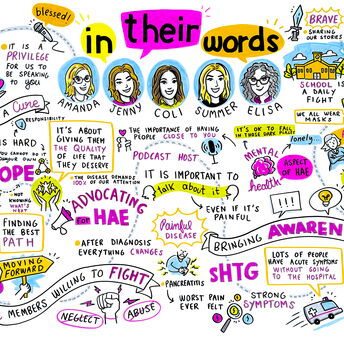 blessed!
in their words
AMANDA
JENNY
COLI
SUMMER
ELISA
BRAVE
SHARING
OUR STORIES
IT IS A
PRIVILEGE
FOR US TO
BE SPEAKING
TO YOU
SCHOOL IS
A DAILY
FIGHT
WE ALL WEAR
MASKS
A CURE
RESPONSIBILITY
IS HARD
IT'S ABOUT
GIVING THEM
THE QUALITY
OF LIFE THAT
THEY DESERVE
THE IMPORTANCE OF HAVING
PEOPLE CLOSE TO YOU
PODCAST HOST
IT'S OK TO FALL
IN THOSE DARK PLACES
lonely
MENTAL
health
ASPECT
OF HAE
OPE
NOT
KNOWING
WHAT'S
NEXT
THE DISEASE DEMANDS
100% OF OUR ATTENTION
IT IS IMPORTANT TO
talk about it
EVEN IF IT'S
PAINFUL
ADVOCATING
FOR HAE
FINDING
THE BEST
PATH
AFTER DIAGNOSIS
EVERYTHING CHANGES
Painful
DISEASE
BRINGING AWAREN
MOVING
FORWARD
PANCREATITIS
WORST PAIN
EVER FELT
sHTG
LOTS OF PEOPLE
HAVE ACUTE SYMPTOMS
WITHOUT GOING
TO THE HOSPITAL
STRONG
SYMPTOMS
MEMBERS WILLING TO FIGHT
NEGLECT
ABUSE